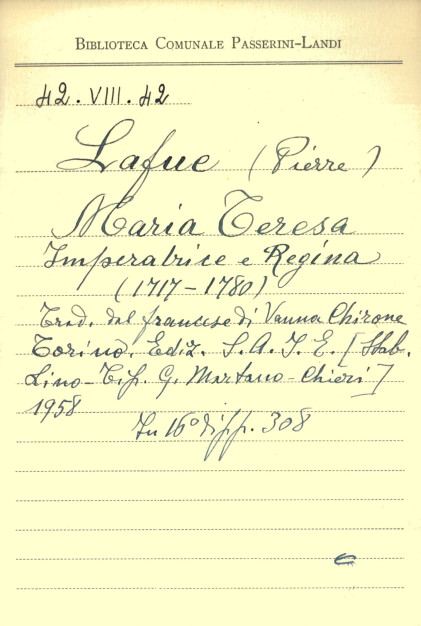 BIBLIOTECA COMUNALE PASSERINI-LANDI
42. VIII. 42
Lafue (Pierre)
Maria Teresa
Imperatrice e Regina
(1717-1780)
Trad. dal francese di Vanna Chirone
Torino. Ediz. S.A.I.E. [Stab.
Lino-Tip. G. Martano-Chieri]
1958
In 16° di pp. 308